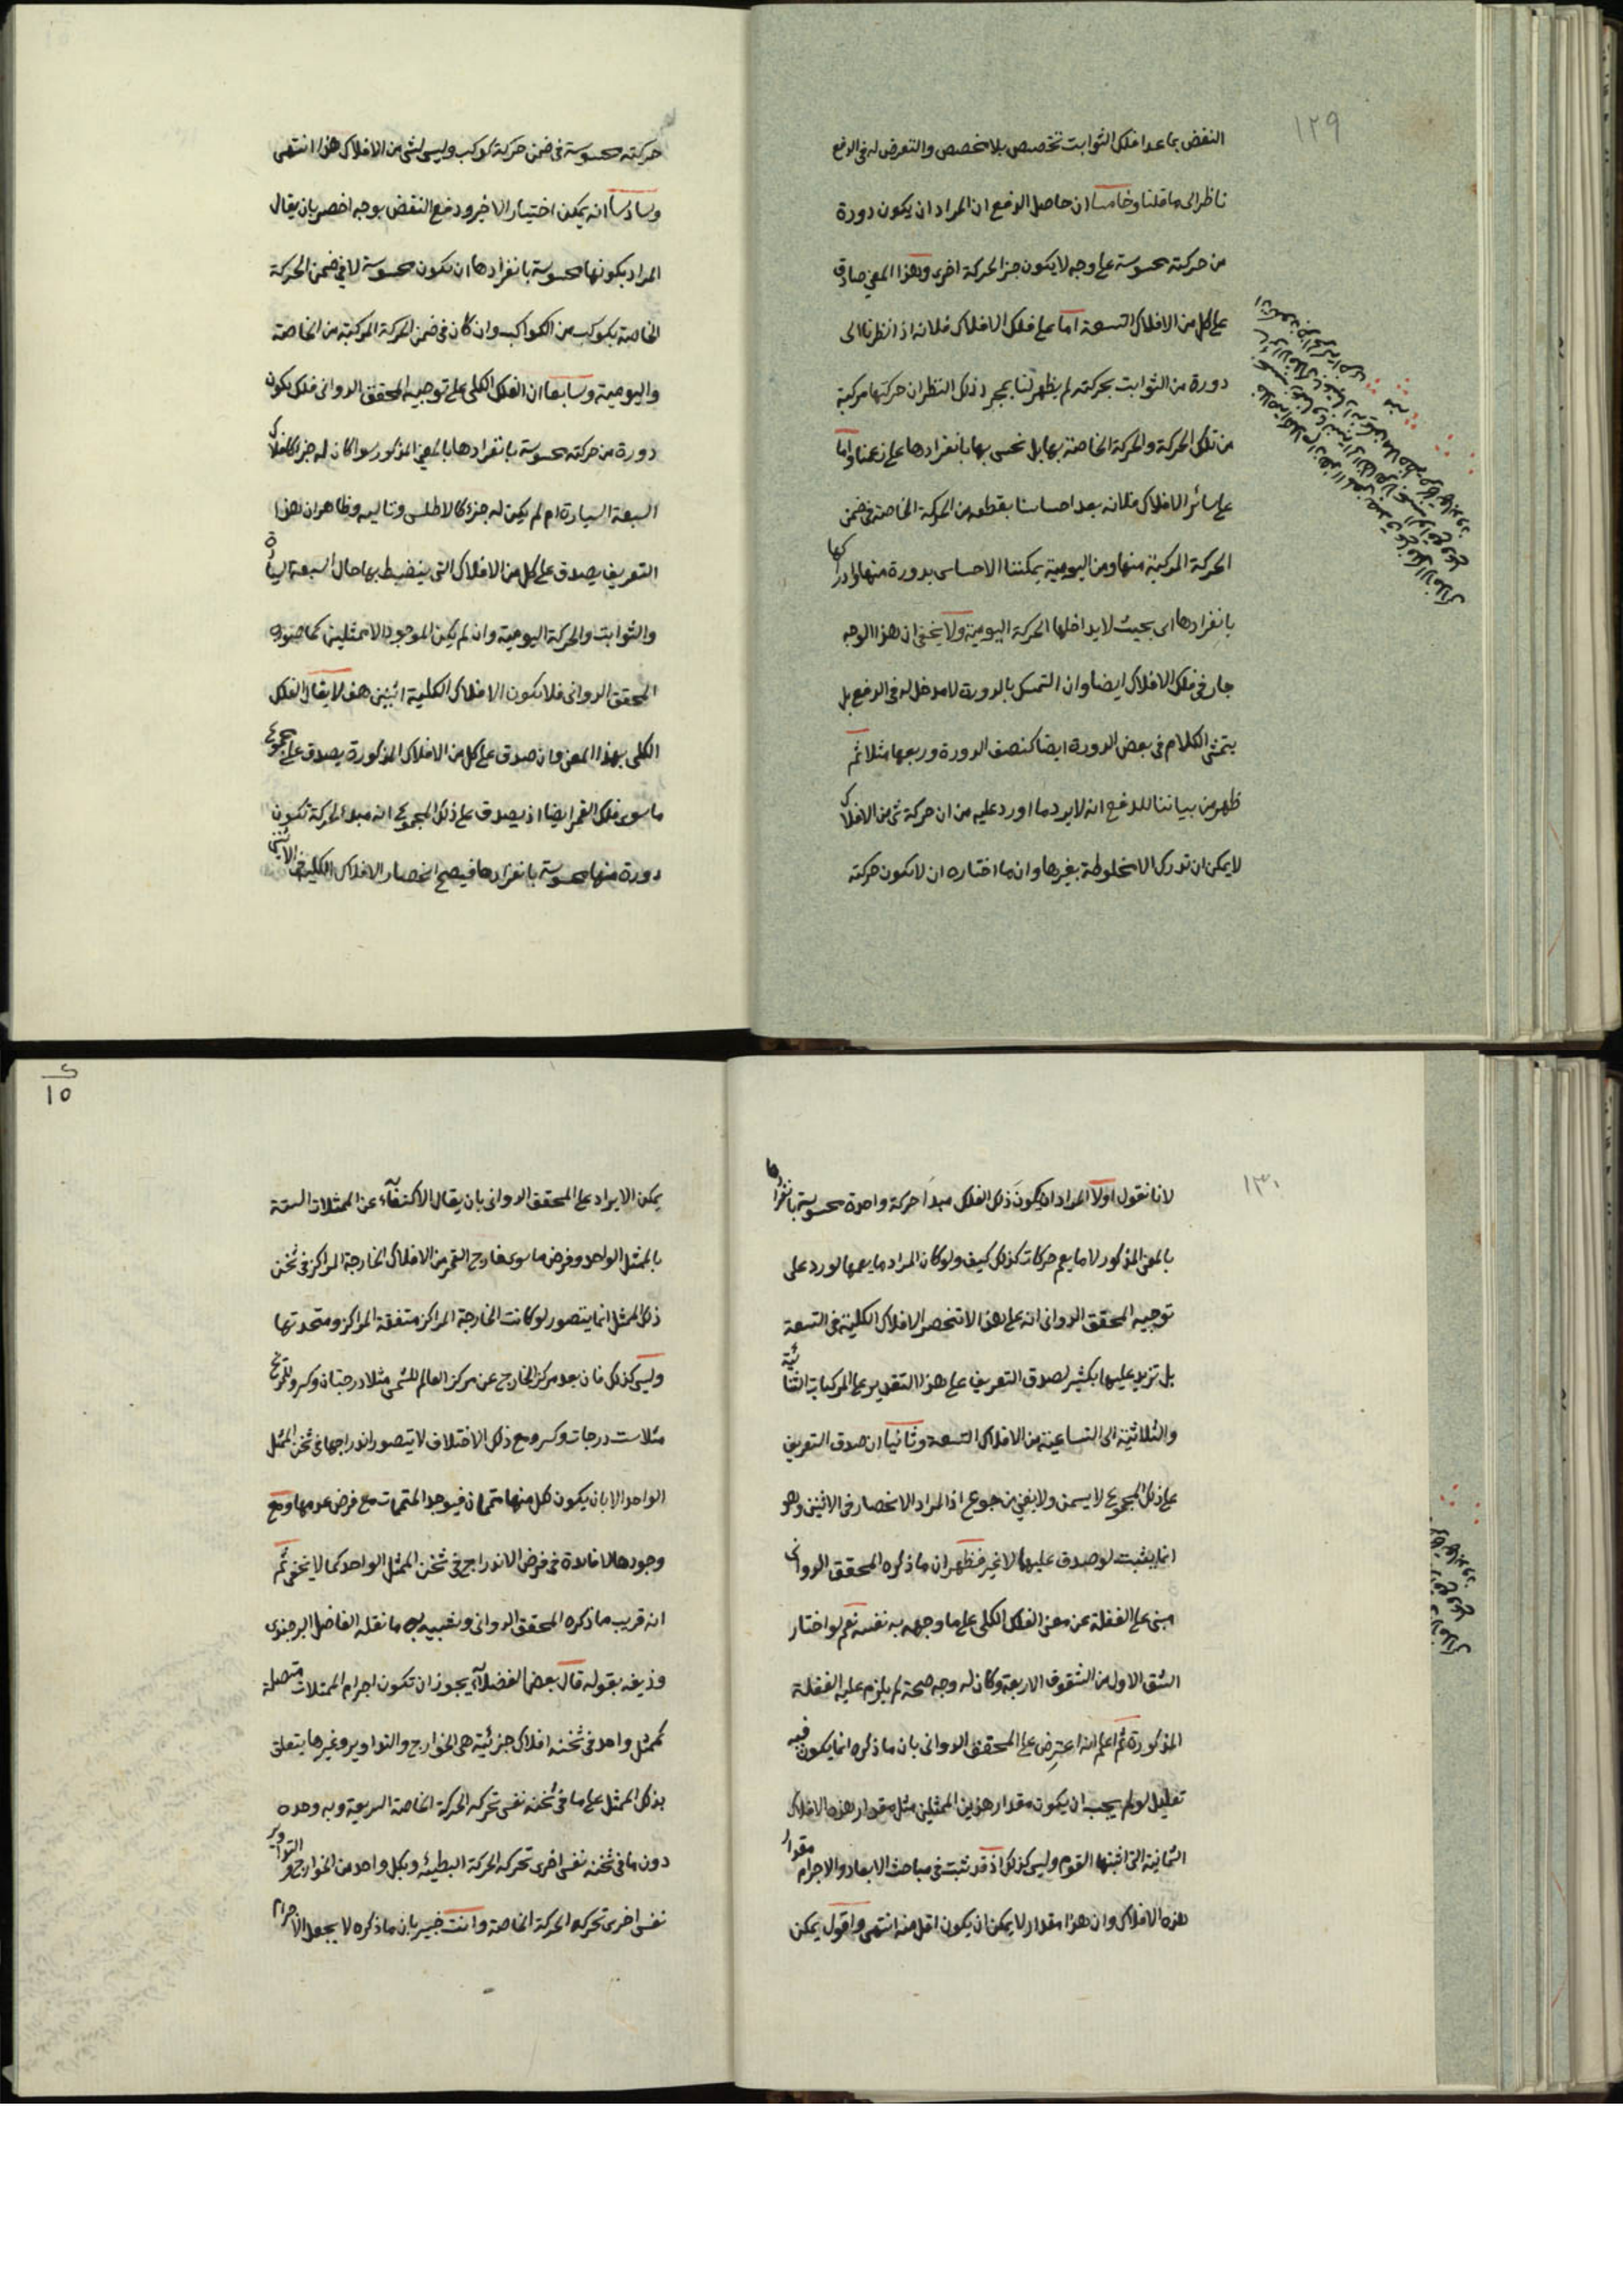 ١٢٩
النقض بما عدا فلك الثوابت تخصيص بلا مخصص والتعرض له في الدفع
ناظر الى ما قلنا وخامسا ان حاصل الدفع ان المراد ان يكون دورة
من حركته محسوسة على وجه لا يكون جزأ لحركة اخرى وهذا المعنى صادق
على كل من الافلاك التسعة اما على فلك الافلاك فلانه اذا نظرنا الى
دورة من الثوابت بحركته لم يظهر لنا بمجرد ذلك النظر ان حركتها مركبة
من تلك الحركة والحركة الخاصة بها بل نحس بها بانفرادها على زعمنا واما
على سائر الافلاك فلانه بعد احساسنا بقطعه من الحركة الخاصة في ضمن
الحركة المركبة منها ومن اليومية يمكننا الاحساس بدورة منها وادراكها
بانفرادها اى بحيث لا يداخلها الحركة اليومية ولا يخفى ان هذا الوجه
جار في فلك الافلاك ايضا وان التمسك بالدورة لا مدخل له في الدفع بل
يتمشى الكلام في بعض الدورة ايضا كنصف الدورة وربعها مثلا ثم
ظهر من بياننا للدفع انه لا يرد ما اورد عليه من ان حركة شئ من الافلاك
لا يمكن ان تدرك الا مخلوطة بغيرها وان ما اختاره ان لا يكون حركته
حركته محسوسة في ضمن حركة كوكب وليس لشئ من الافلاك هذا انتهى
وسادسا انه يمكن اختيار الاخير ودفع النقض بوجه اخصر بان يقال
المراد بكونها محسوسة بانفرادها ان يكون محسوسة لا في ضمن الحركة
الخاصة بكوكب من الكواكب وان كان في ضمن الحركة المركبة من الخاصة
واليومية وسابعا ان الفلك الكلى على توجيه المحقق الدوانى فلك يكون
دورة من حركته محسوسة بانفرادها بالمعنى المذكور سوا كان له جزء كافلاك
السبعة السيارة ام لم يكن له جزء كالاطلس وتاليه وظاهر ان هذا
التعريف يصدق على كل من الافلاك التى ينضبط بها حال السبعة السيارة
والثوابت والحركة اليومية وان لم يكن الموجود الا ممثلين كما صوره
المحقق الدوانى فلا يكون الافلاك الكلية اثنين هف لا يقال الفلك
الكلى بهذا المعنى وان صدق على كل من الافلاك المذكورة يصدق على مجموع
ما سوى فلك القمر ايضا اذ يصدق على ذلك المجموع انه مبدأ لحركة تكون
دورة منها محسوسة بانفرادها فيصح انحصار الافلاك الكلية في الاثنين
١٣٠
لانا نقول اولا المراد ان يكون ذلك الفلك مبدأ حركة واحدة محسوسة بانفرادها
بالمعنى المذكور لا ما يعم حركات كذلك كيف ولو كان المراد ما يعمها لورد على
توجيه المحقق الدوانى انه على هذا لا تنحصر الافلاك الكلية في التسعة
بل تزيد عليها بكثير لصدق التعريف على هذا التقدير على المركبات الثنائية
والثلاثية الى التساعية من الافلاك التسعة وثانيا ان صدق التعريف
على ذلك المجموع لا يسمن ولا يغنى من جوع اذ المراد الانحصار فى الاثنين وهو
انما يثبت لو صدق عليهما لا غير فظهر ان ما ذكره المحقق الدوانى
مبنى على الغفلة عن معنى الفلك الكلى على ما وجهه به نفسه نعم لو اختار
الشق الاول من الشقوق الاربعة وكان له وجه صحة لم يلزم عليه الغفلة
المذكورة ثم اعلم انه اعترض على المحقق الدوانى بان ما ذكره انما يكون فيه
تقليل لو لم يجب ان يكون مقدار هذين الممثلين مثل مقدار هذه الافلاك
الثمانية التى اثبتها القوم وليس كذلك اذ قد ثبت فى مباحث الابعاد والاجرام مقدار
هذه الافلاك وان هذا مقدار لا يمكن ان يكون اقل منه انتهى واقول يمكن
٢
١٥
يمكن الايراد على المحقق الدوانى بان يقال الاكتفآء عن الممثلات الستة
بالممثل الواحد وفرض ما سوى خارج القمر من الافلاك الخارجة المراكز فى ثخن
ذلك الممثل انما يتصور لو كانت الخارجة المراكز متفقة المراكز ومتحدتها
وليس كذلك فان بعد مركز الخارج عن مركز العالم للشمس مثلا درجتان وكسر وللمريخ
مثلا ست درجات وكسر ومع ذلك الاختلاف لا يتصور اندراجها فى ثخن الممثل
الواحد الا بان يكون كل منها متممان فيوجد المتممات مع فرض عدمها ومع
وجودها لا فائدة فى فرض الاندراج فى ثخن الممثل الواحد كما لا يخفى ثم
انه قريب مما ذكره المحقق الدوانى وشبيه به ما نقله الفاضل البرجندى
وزيفه بقوله قال بعض الفضلآء يجوز ان تكون اجرام الممثلات متصلة
كممثل واحد فى ثخنه افلاك جزئية هى الخوارج والتداوير وغيرها يتعلق
بذلك الممثل على ما فى ثخنه نفس تحركه الحركة الخاصة السريعة وبه وحده
دون ما فى ثخنه نفس اخرى تحركه الحركة البطيئه وبكل واحد من الخوارج والتداوير
نفس اخرى تحركه الحركة الخاصة وانت خبير بان ما ذكره لا يجعل الاجرام